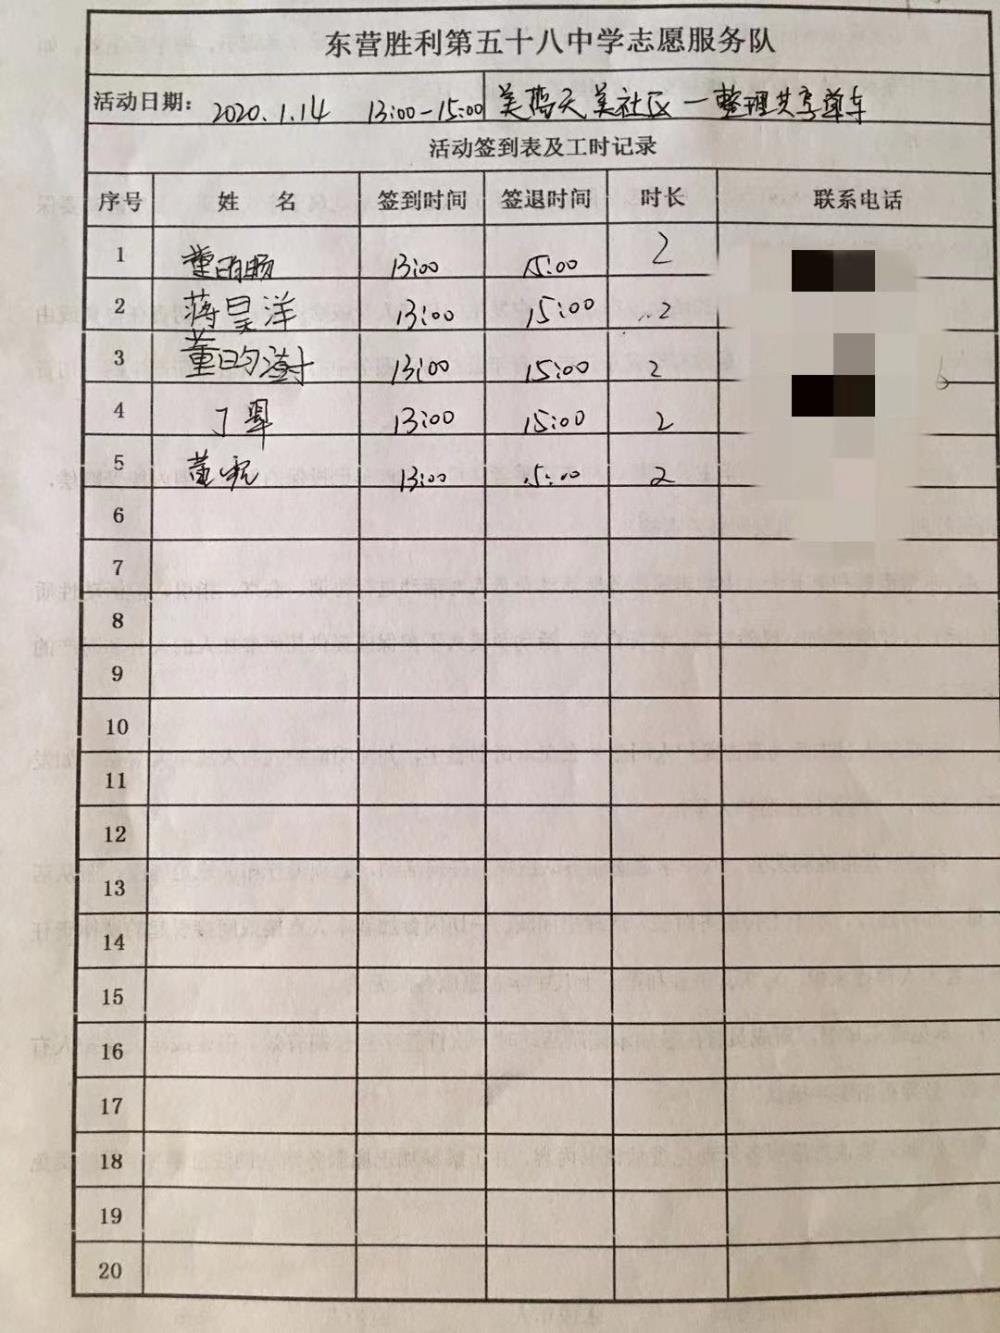 东营胜利第五十八中学志愿服务队
活动日期： 2020.1.14 13:00-15:00 美鸿天美社区-整理共享单车
活动签到表及工时记录
序号 姓 名 签到时间 签退时间 时长 联系电话
1 13:00 15:00 2
2 蒋昊洋 13:00 15:00 2
3 董昀 13:00 15:00 2
4 丁翠 13:00 15:00 2
5 13:00 15:00 2
6
7
8
9
10
11
12
13
14
15
16
17
18
19
20